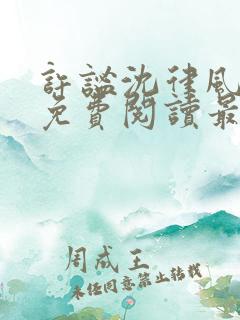 許謐沈律風
免費閱讀最
周成王
未经同意禁止转载